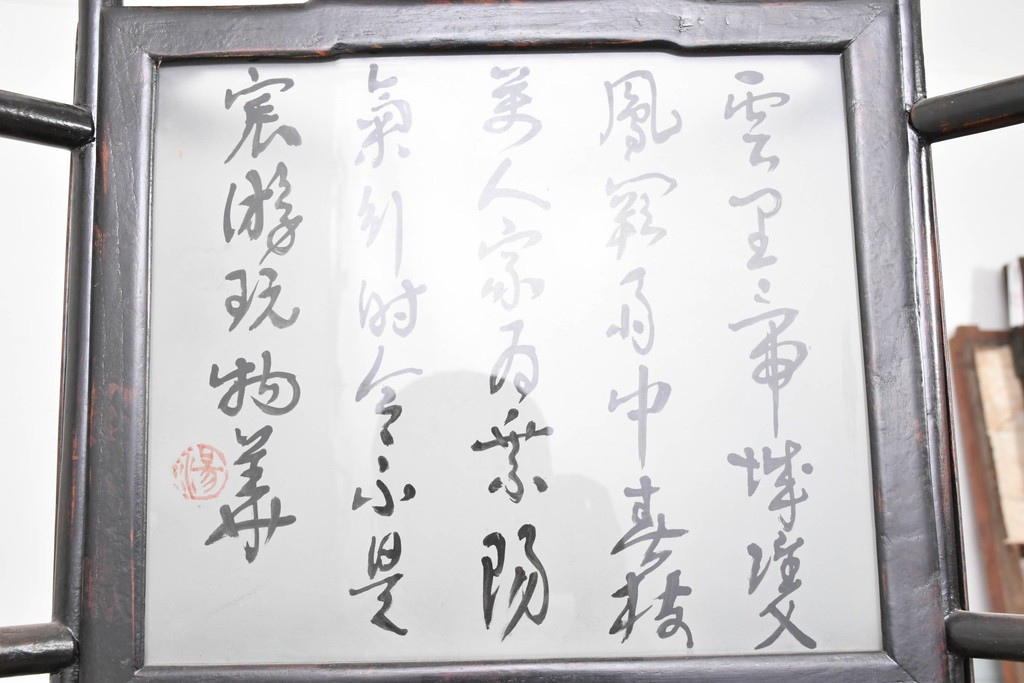 雲里帝城雙
鳳闕雨中春树
萬人家为乘陽
氣行时令不是
宸游玩物華